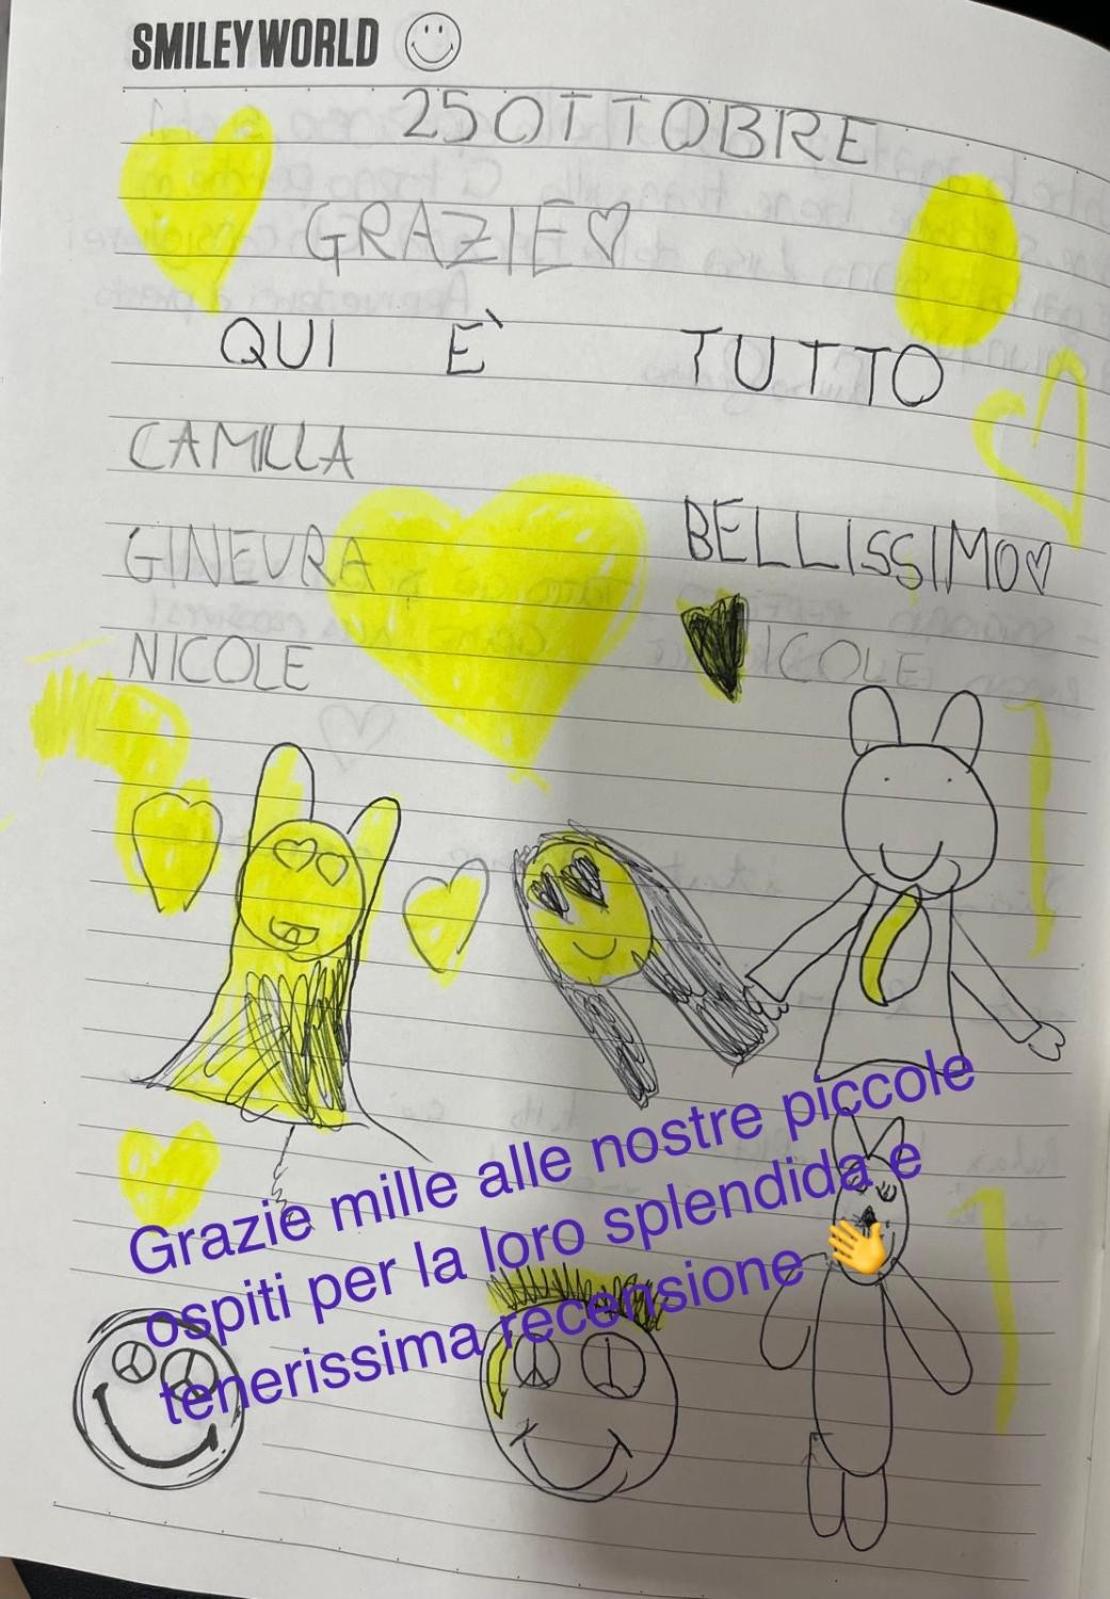 SMILEYWORLD
25 OTTOBRE
GRAZIE♡
QUI È TUTTO
CAMILLA
BELLISSIMO♡
GINEVRA
NICOLE
NICOLE
Grazie mille alle nostre piccole
ospiti per la loro splendida e
tenerissima recensione 👋